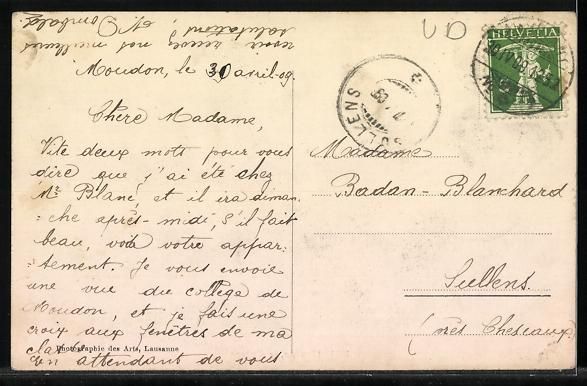 Moudon, le 30 avril-09.
Chère Madame,
Vite deux mots pour vous
dire que j'ai été chez
Mr Blanc, et il ira diman-
=che après-midi, s'il fait
beau, voir votre appar-
=tement. Je vous envoie
une vue du collège de
Moudon, et je fais une
croix aux fenêtres de ma
En attendant de vous
revoir recevez nos meilleurs
salutations
Photographie des Arts, Lausanne
UD
HELVETIA
SULLENS
Madame
Badan-Blanchard
Sullens.
(près Cheseaux)